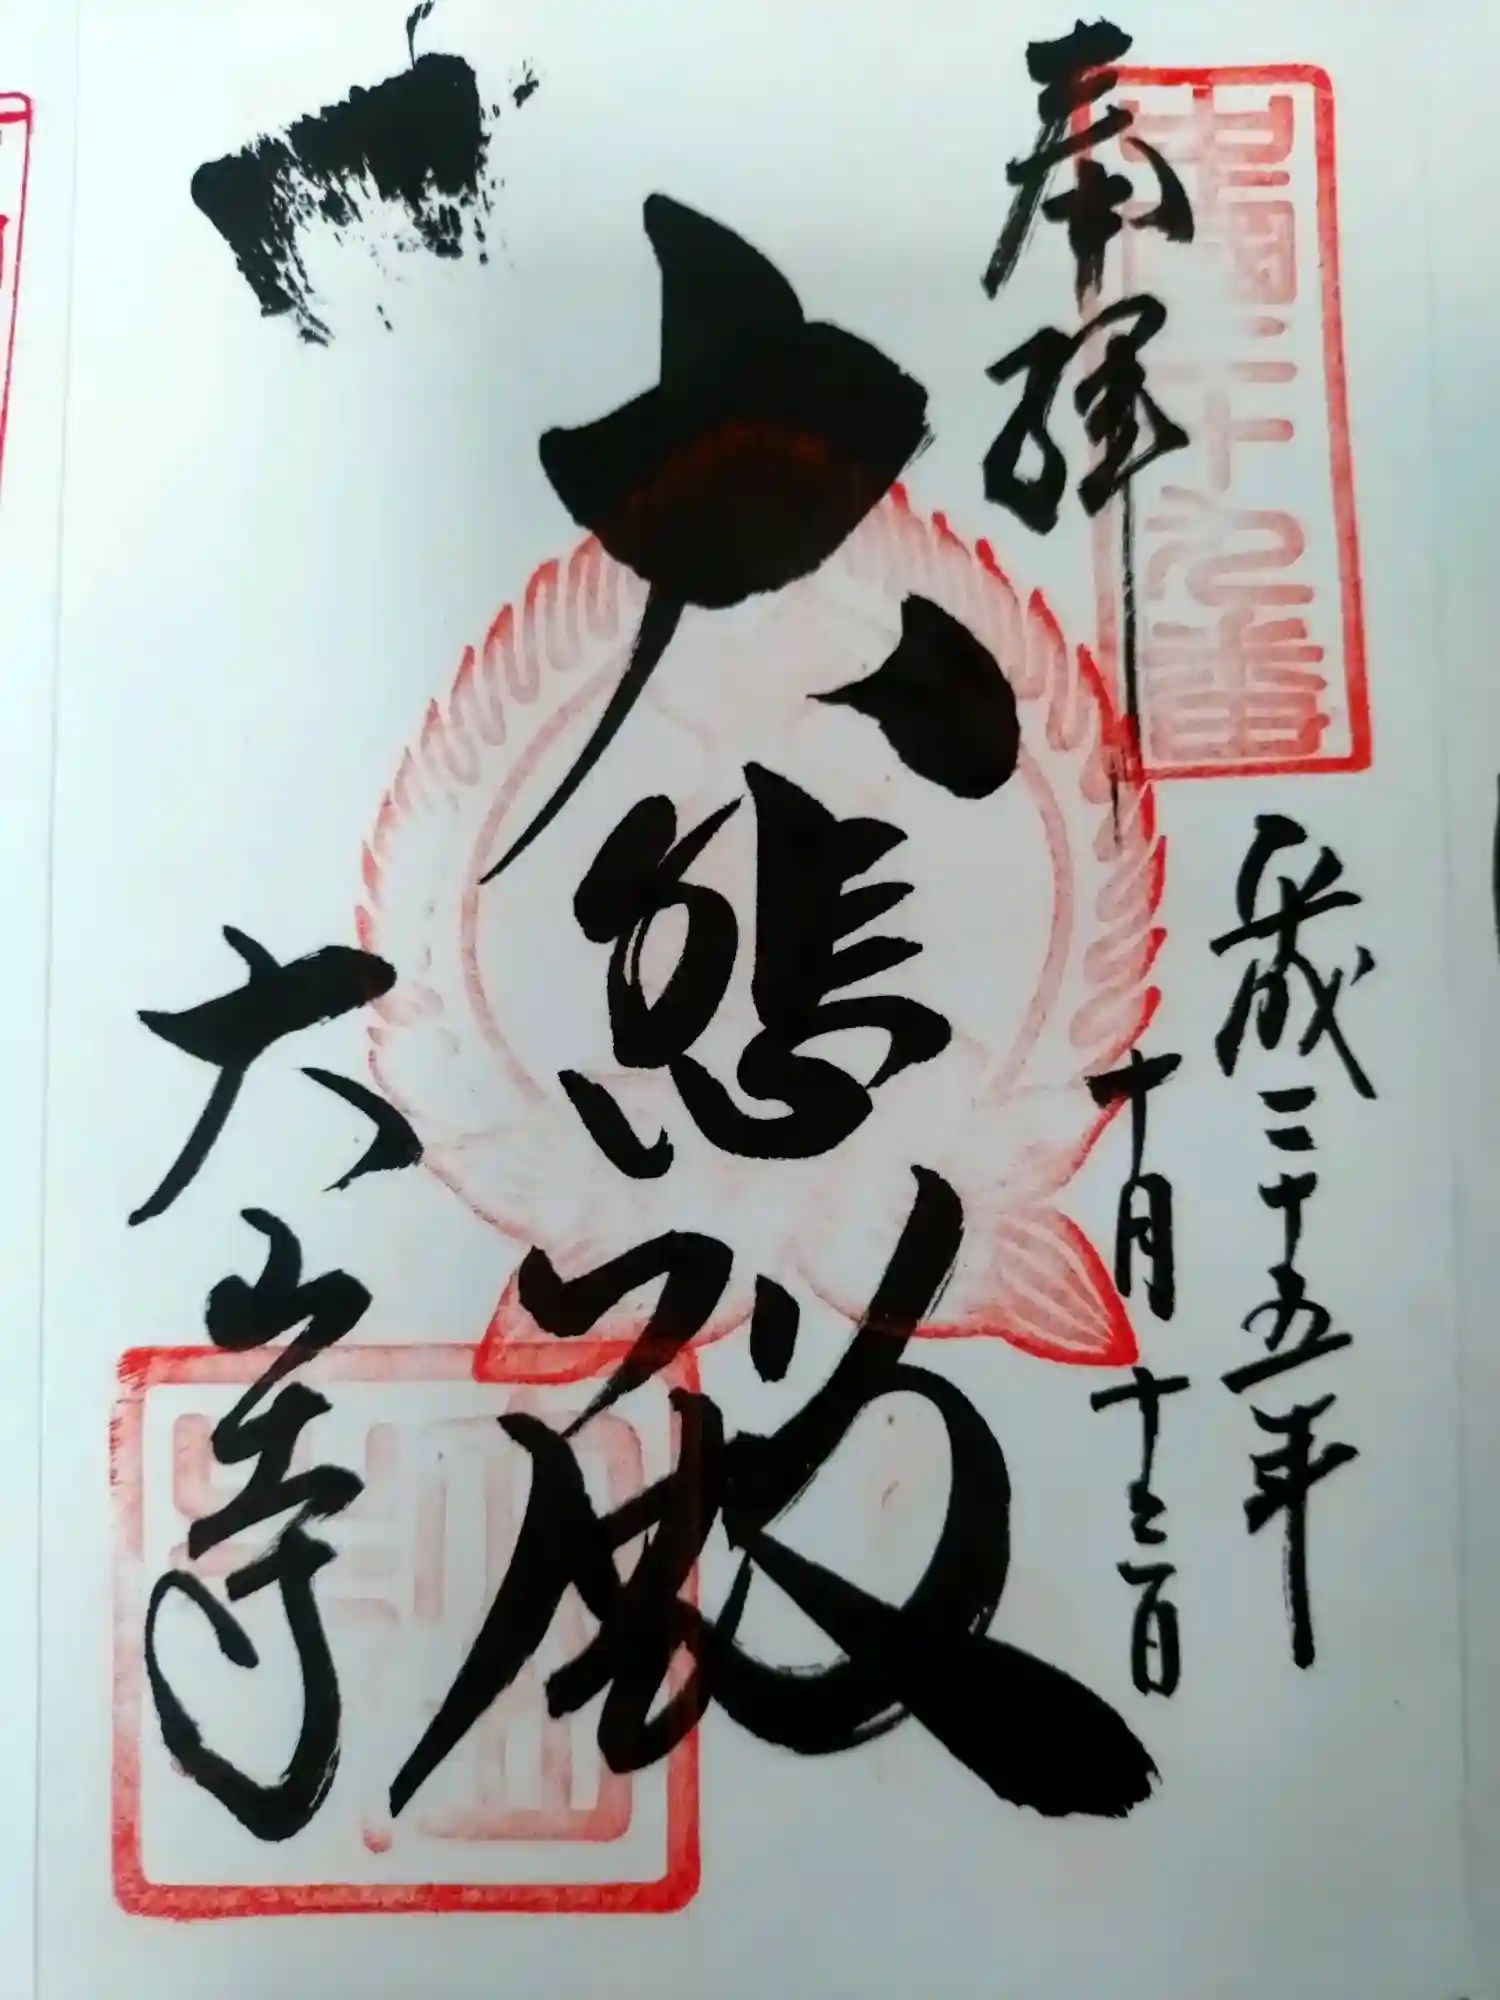 奉拝
中國二十九番
平成二十五年
十月十三日
大悲殿
大山寺